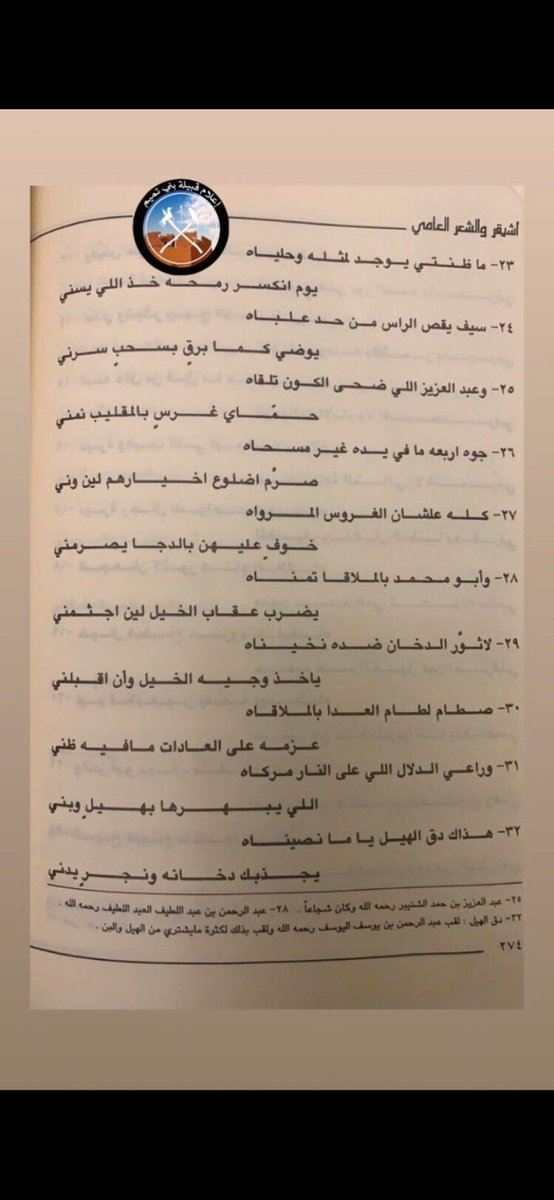 اعلام قبيلة بني تميم
اشيقر والشعر العامي
٢٣- ما ظنتي يوجد لمثله وحلياه
يوم انكسر رمحه خذ اللي يسني
٢٤- سيف يقص الراس من حد علباه
يوضي كما برقٍ بسحبٍ سرني
٢٥- وعبد العزيز اللي ضحى الكون تلقاه
حمّاي غرسٍ بالمقليب نمني
٢٦- جوه اربعه ما في يده غير مسحاه
صرّم اضلوع اخيارهم لين وني
٢٧- كله علشان الغروس المرواه
خوفٍ عليهن بالدجا يصرمني
٢٨- وأبو محمد بالملاقا تمناه
يضرب عقاب الخيل لين اجثمني
٢٩- لاثوّر الدخان ضده نخيناه
ياخذ وجيه الخيل وأن اقبلني
٣٠- صطام لطام العدا بالملاقاه
عزمه على العادات مافيه ظني
٣١- وراعي الدلال اللي على النار مركاه
اللي يبهرها بهيلٍ وبني
٣٢- هذاك دق الهيل يا ما نصيناه
يجذبك دخانه ونجرٍ يدني
٢٥- عبد العزيز بن حمد الشنيبر رحمه الله وكان شجاعاً . ٢٨- عبد الرحمن بن عبد اللطيف العبد اللطيف رحمه الله .
٣٢- دق الهيل : لقب عبد الرحمن بن يوسف اليوسف رحمه الله ولقب بذلك لكثرة مايشتري من الهيل والبن .
٢٧٤